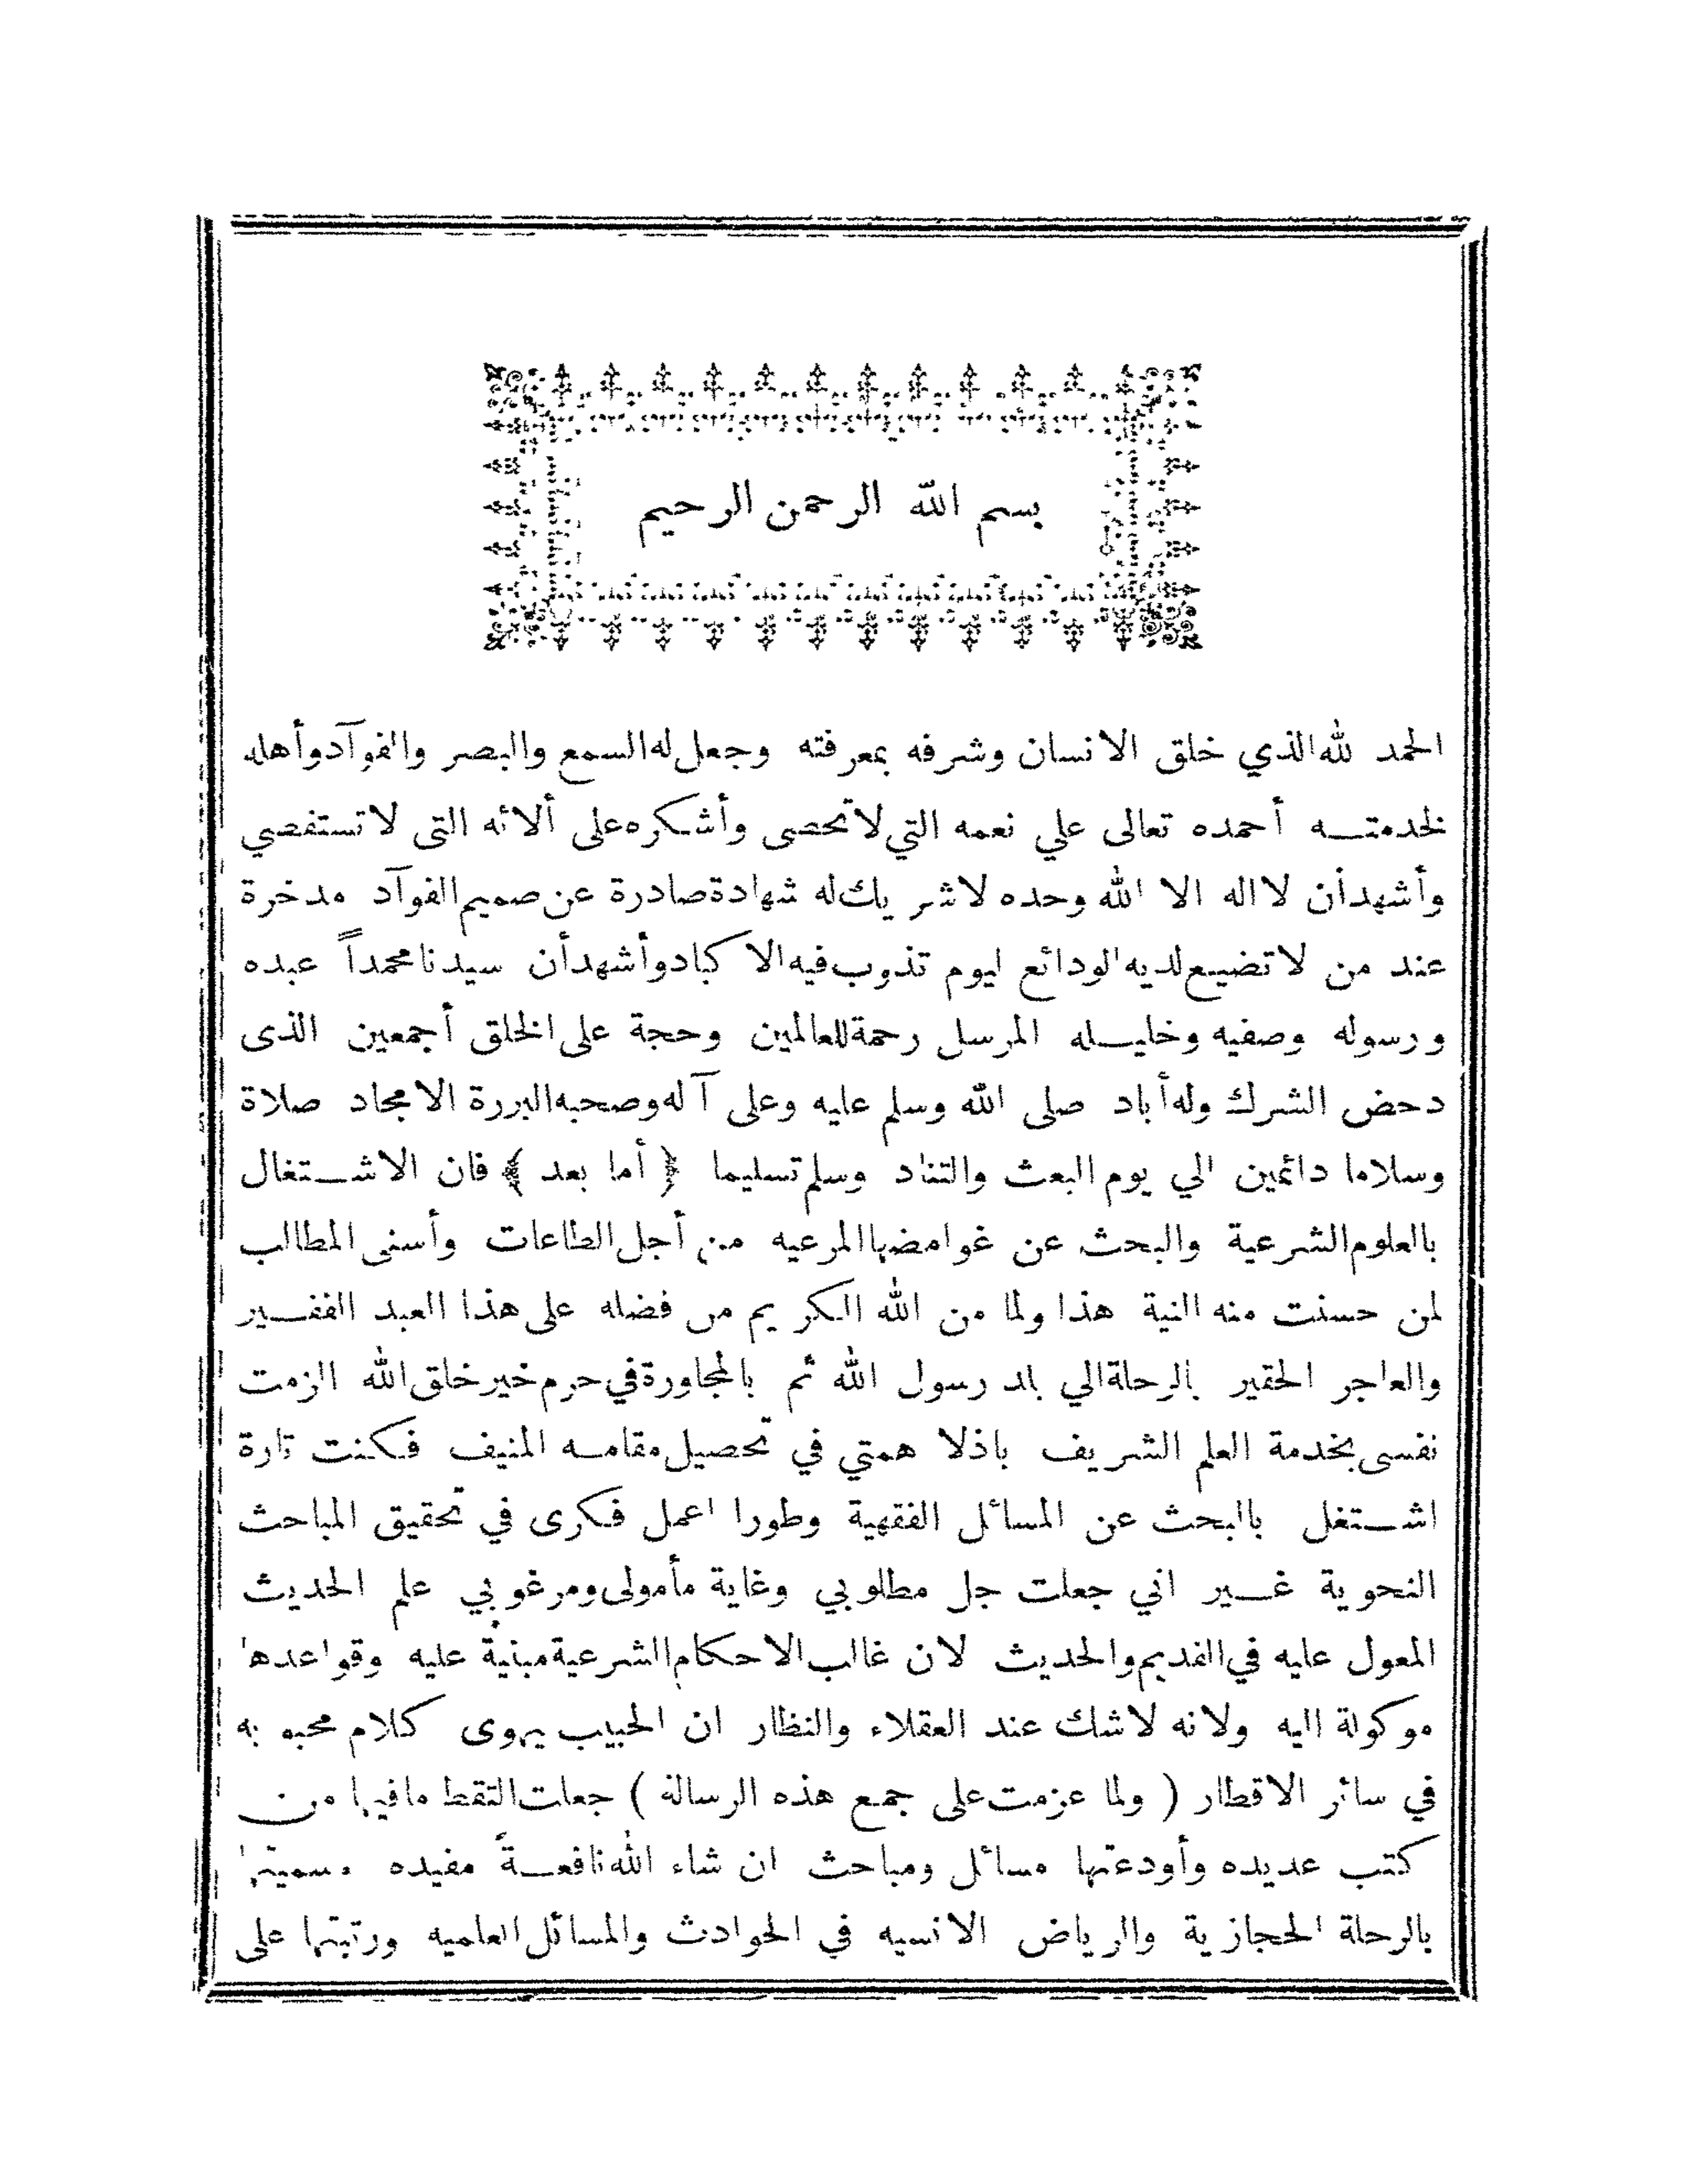 بسم الله الرحمن الرحيم
الحمد لله الذي خلق الانسان وشرفه بمعرفته وجعل له السمع والبصر والفوآد وأهله
لخدمته أحمده تعالى علي نعمه التي لا تحصى وأشكره على ألائه التى لا تستقصي
وأشهد أن لا اله الا الله وحده لا شريك له شهادة صادرة عن صميم الفوآد مدخرة
عند من لا تضيع لديه الودائع ليوم تذوب فيه الاكباد وأشهد أن سيدنا محمداً عبده
ورسوله وصفيه وخليله المرسل رحمة للعالمين وحجة على الخلق أجمعين الذى
دحض الشرك وله أباد صلى الله وسلم عليه وعلى آله وصحبه البررة الامجاد صلاة
وسلاما دائمين الي يوم البعث والتناد وسلم تسليما ﴿ أما بعد ﴾ فان الاشتغال
بالعلوم الشرعية والبحث عن غوامضها المرعيه من أجل الطاعات وأسنى المطالب
لمن حسنت منه النية هذا ولما من الله الكريم من فضله على هذا العبد الفقير
والعاجر الحقير بالرحلة الي بلد رسول الله ثم بالمجاورة في حرم خير خلق الله الزمت
نفسى بخدمة العلم الشريف باذلا همتي في تحصيل مقامه المنيف فكنت تارة
اشتغل بالبحث عن المسائل الفقهية وطورا اعمل فكرى في تحقيق المباحث
النحوية غير اني جعلت جل مطلوبي وغاية مأمولى ومرغوبي علم الحديث
المعول عليه في القديم والحديث لان غالب الاحكام الشرعية مبنية عليه وقواعدها
موكولة اليه ولانه لا شك عند العقلاء والنظار ان الحبيب يهوى كلام محبوبه
في سائر الاقطار ( ولما عزمت على جمع هذه الرسالة ) جعلت التقط ما فيها من
كتب عديده وأودعتها مسائل ومباحث ان شاء الله نافعةً مفيده وسميتها
بالرحلة الحجازية والرياض الانسيه في الحوادث والمسائل العلميه ورتبتها على